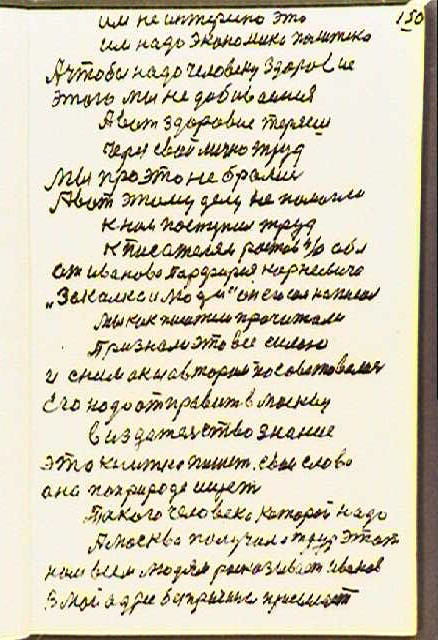 150
им не интерино это
им надо экономика политика
А чтобы надо человеку здоровие
этого мы не добиваемия
А вот здоровие теряем
через свой лично труд
Мы про это не брали
А вот этому делу не помогли
к нам поступил труд
к писателям ростов н/о обл
от иванова Парфирия корнеевича
„Закалка и люди" он его сам написал
мы как писатели прочитали
признали это всё сильно
и с ним как автором посоветовался
его надо отправить в москву
в издателство знание
это книжка пишет свои слово
она по природе ищет
такого человека которой надо
А москва получила труд этот
нам всем людям расказивает иванов
В мой адрес беспричине присылает